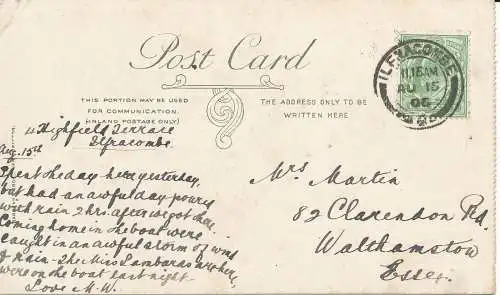 Post Card
THIS PORTION MAY BE USED
FOR COMMUNICATION.
(INLAND POSTAGE ONLY)
THE ADDRESS ONLY TO BE
WRITTEN HERE
ILFRACOMBE
11.15AM
AU 15
06
11 Highfield Terrace
Ilfracombe.
Aug. 15th
Spent the day here yesterday,
but had an awful day poured
with rain 2 hrs. after we got there.
Coming home in the boat were
caught in an awful storm of wind
& rain - The Miss Lambaras are here,
were on the boat last night
Love M.W.
Mrs Martin
82 Clarendon Rd.
Walthamstow
Essex.